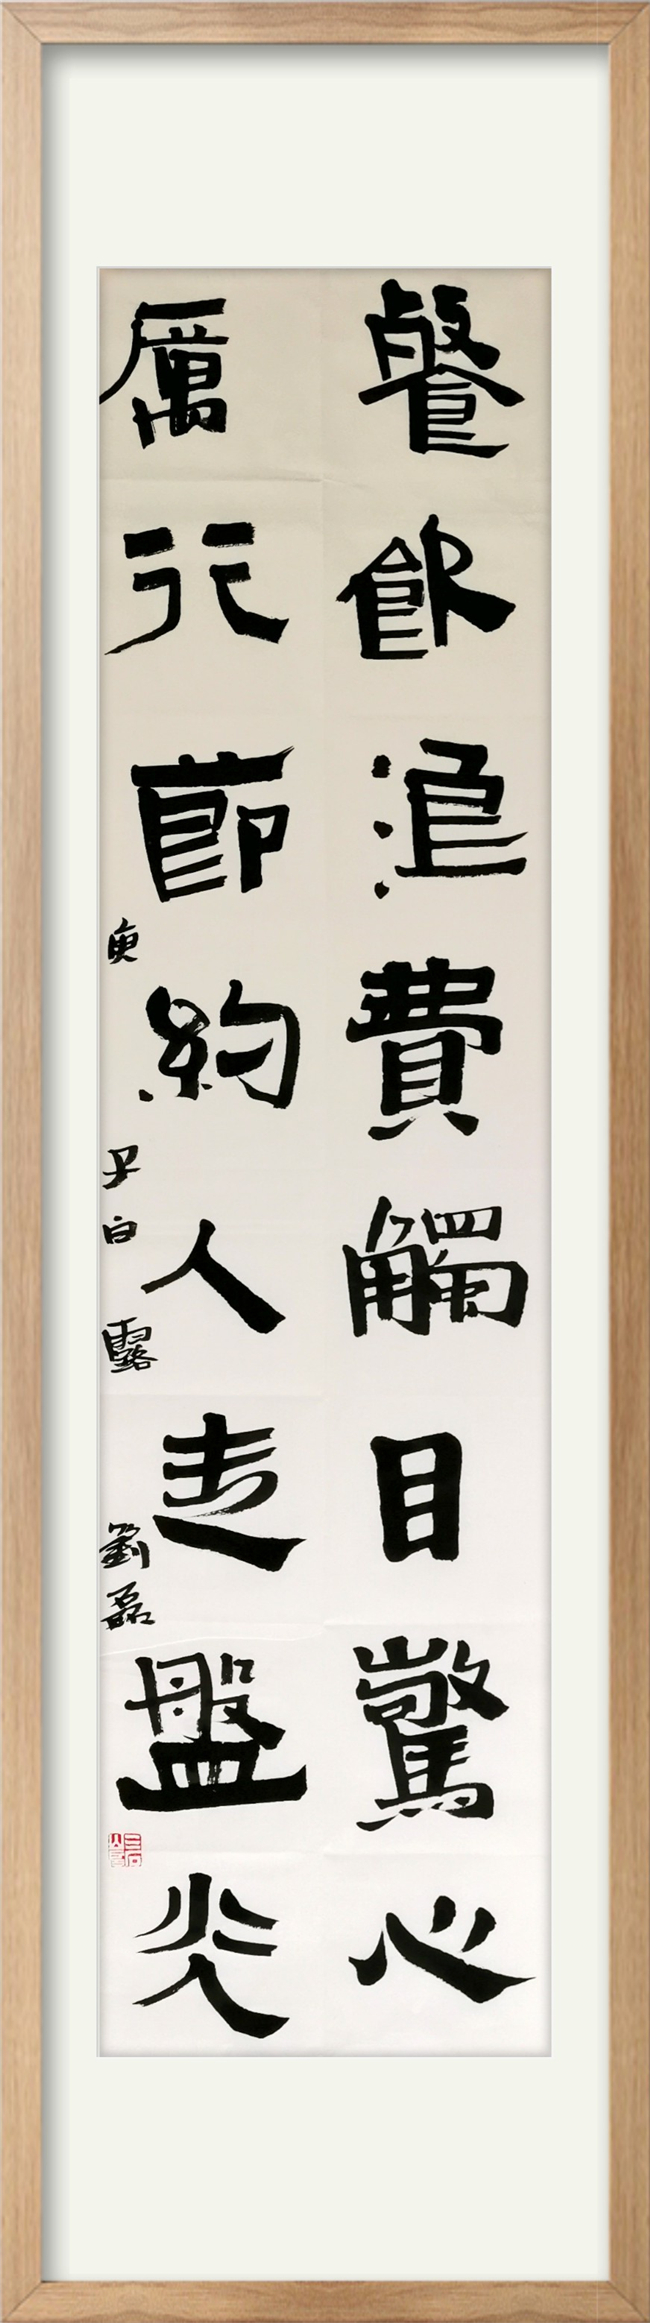 餐飲浪費觸目驚心
厲行節約人走盤光
庚子白露劉磊